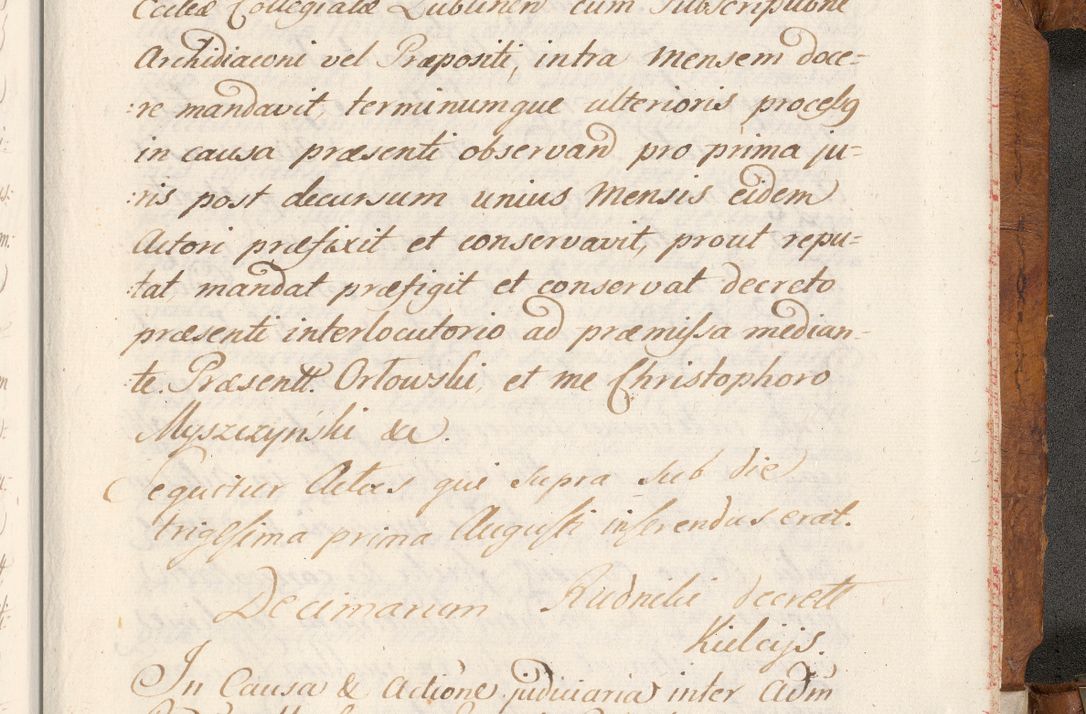 Cccleæ Collegiatæ Lublinen cum subscriptione
Archidiaconi vel Præpositi, intra mensem doce-
:re mandavit, terminumque ulterioris processg
in causa præsenti observand pro prima ju-
:ris post decursum unius Mensis eidem
Actori præfixit et conservavit, prout repu-
:tat, mandat præfigit et conservat decreto
præsenti interlocutorio ad præmissa median-
te. Præsentt. Orłowski, et me Christophoro
Myszczyński &c.
Sequitur Actus qui supra sub die
trigesima prima Augusti inserendus erat.
Decimarum Rudniki decrett
Kielcijs.
In Causa & Actiōne judiciaria inter Adm̄